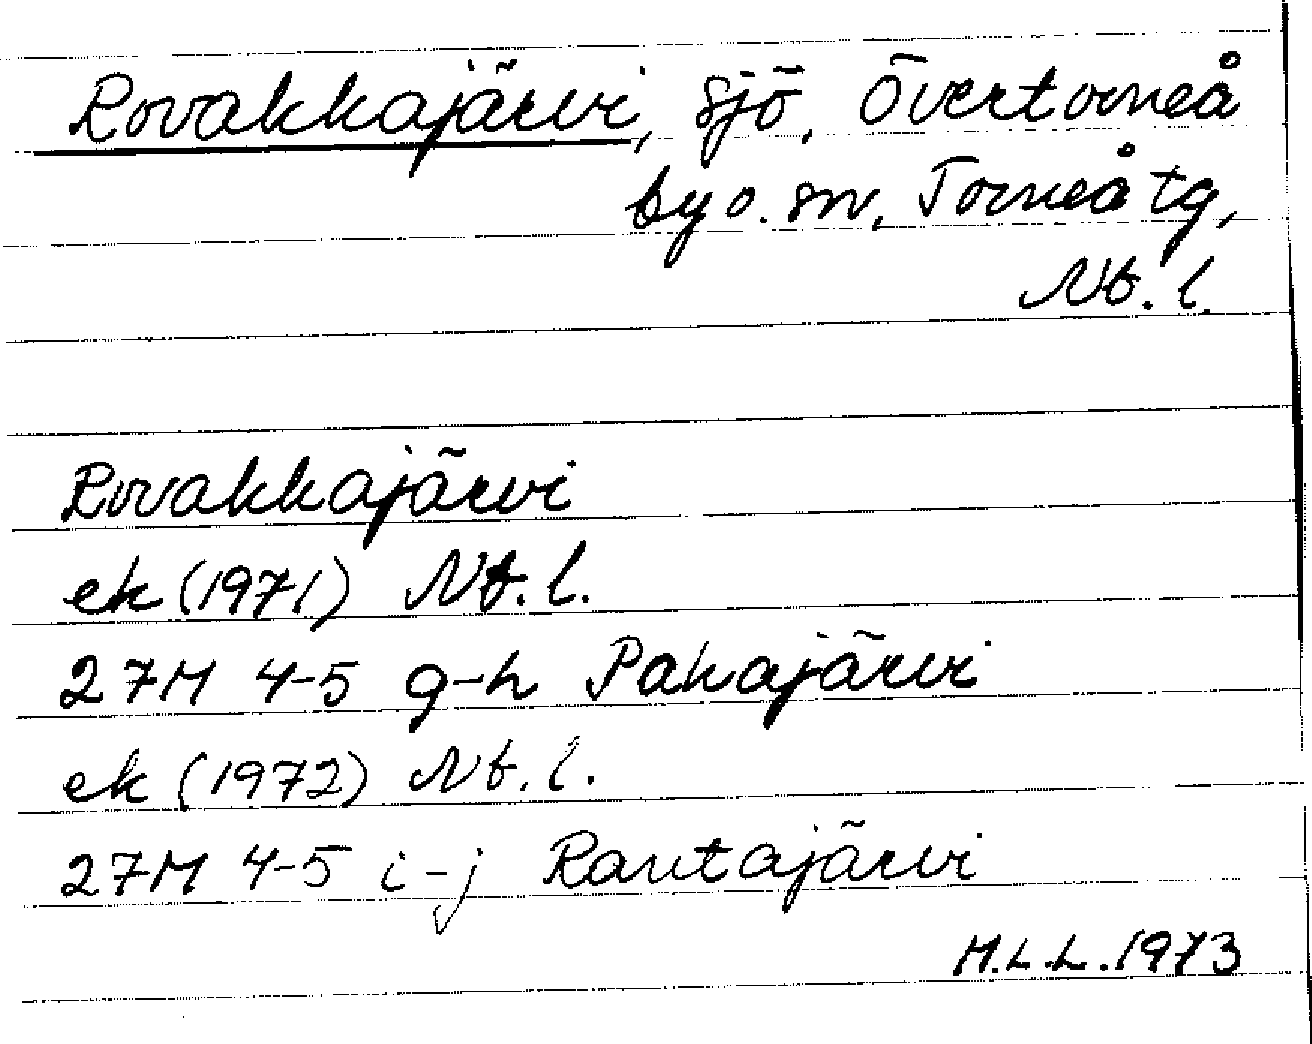 Rovakkajärvi, sjö, Övertorneå
by o. sn, Torneå tg,
Nb. l.
Rovakkajärvi
ek (1971) Nb. l.
27M 4-5 g-h Pakajärvi
ek (1972) Nb. l.
27M 4-5 i-j Rantajärvi
M.L-L. 1973